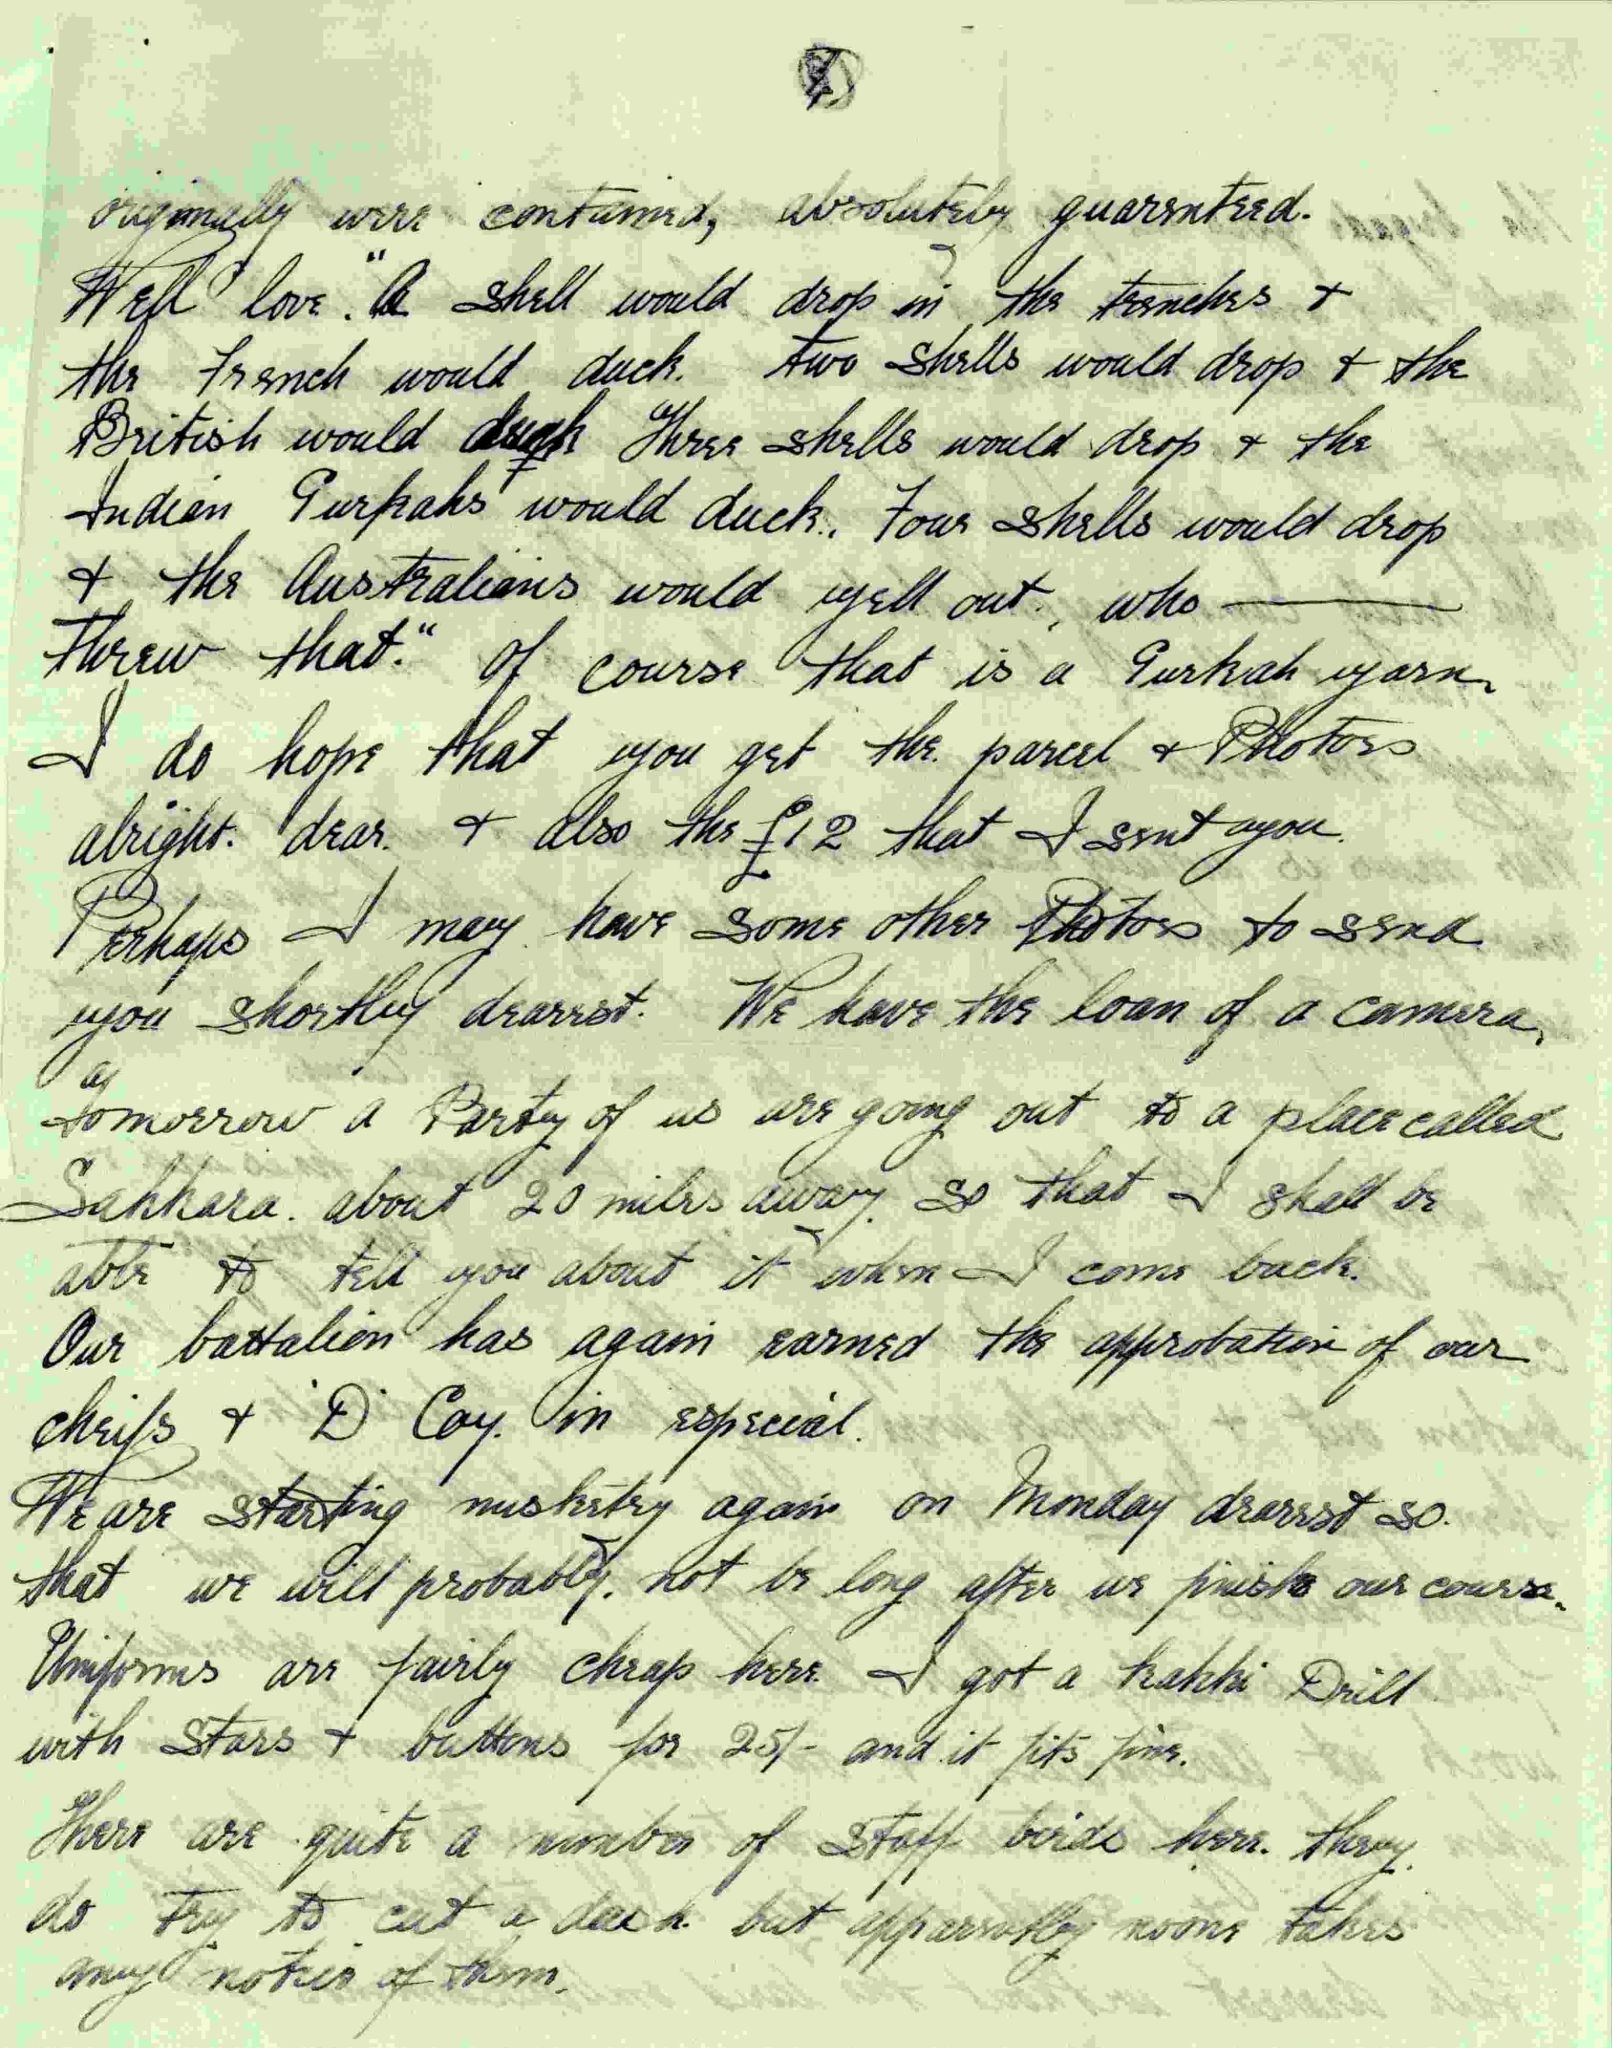 originally were contained, absolutely guarenteed.
Well love. "A shell would drop in the trenches &
the French would duck. Two shells would drop & the
British would duck Three shells would drop & the
Indian Gurkahs would duck. Four shells would drop
& the Australians would yell out, who ———
threw that." Of course that is a Gurkah yarn.
I do hope that you get the parcel & Photoes
alright. dear. & also the £12 that I sent you.
Perhaps I may have some other Photoes to send
you shortly dearest. We have the loan of a camera,
as
tomorrow a Party of us are going out to a place called
Sakkara. about 20 miles away. so that I shall be
able to tell you about it when I come back.
Our battalion has again earned the approbation of our
cheifs & 'D' Coy. in especial.
We are starting musketry again on Monday dearest so.
that we will probably. not be long after we finish our course.
Uniforms are fairly cheap here. I got a kakki Drill
with stars & buttons for 25/- and it fits fine.
There are quite a number of staff birds here. they.
do try to cut a dash. but apparently noone takes
any notice of them.